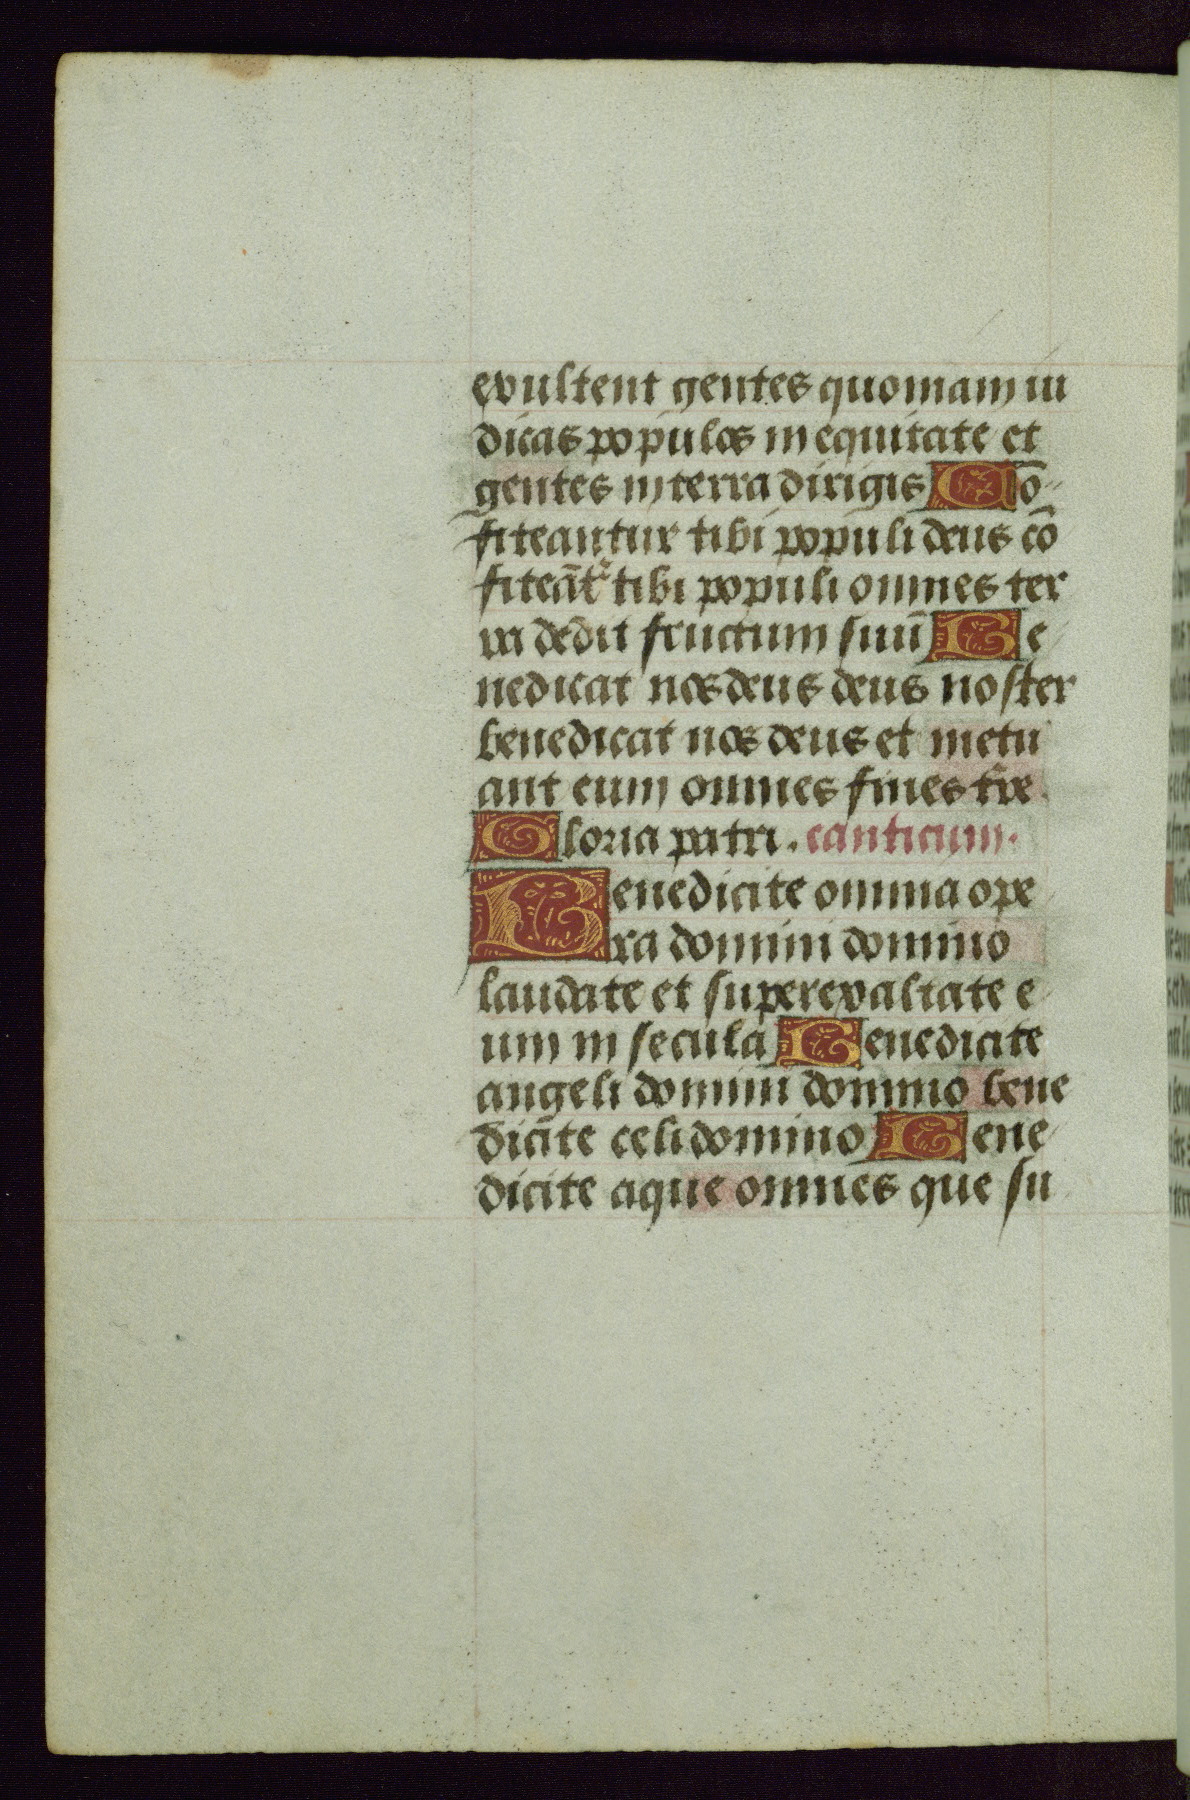 exultent gentes quoniam iu
dicas populos in equitate et
gentes in terra dirigis Cō
fiteantur tibi populi deus cō
fiteāt᷑ tibi populi omnes ter
ra dedit fructum suū Be
nedicat nos deus deus noster
benedicat nos deus et metu
ant eum omnes fines tr̄e
Gloria patri. canticum.
Benedicite omnia ope
ra domini domino
laudate et superexaltate e
um in secula Benedicite
angeli domini domino bene
dicite celi domino Bene
dicite aque omnes que su